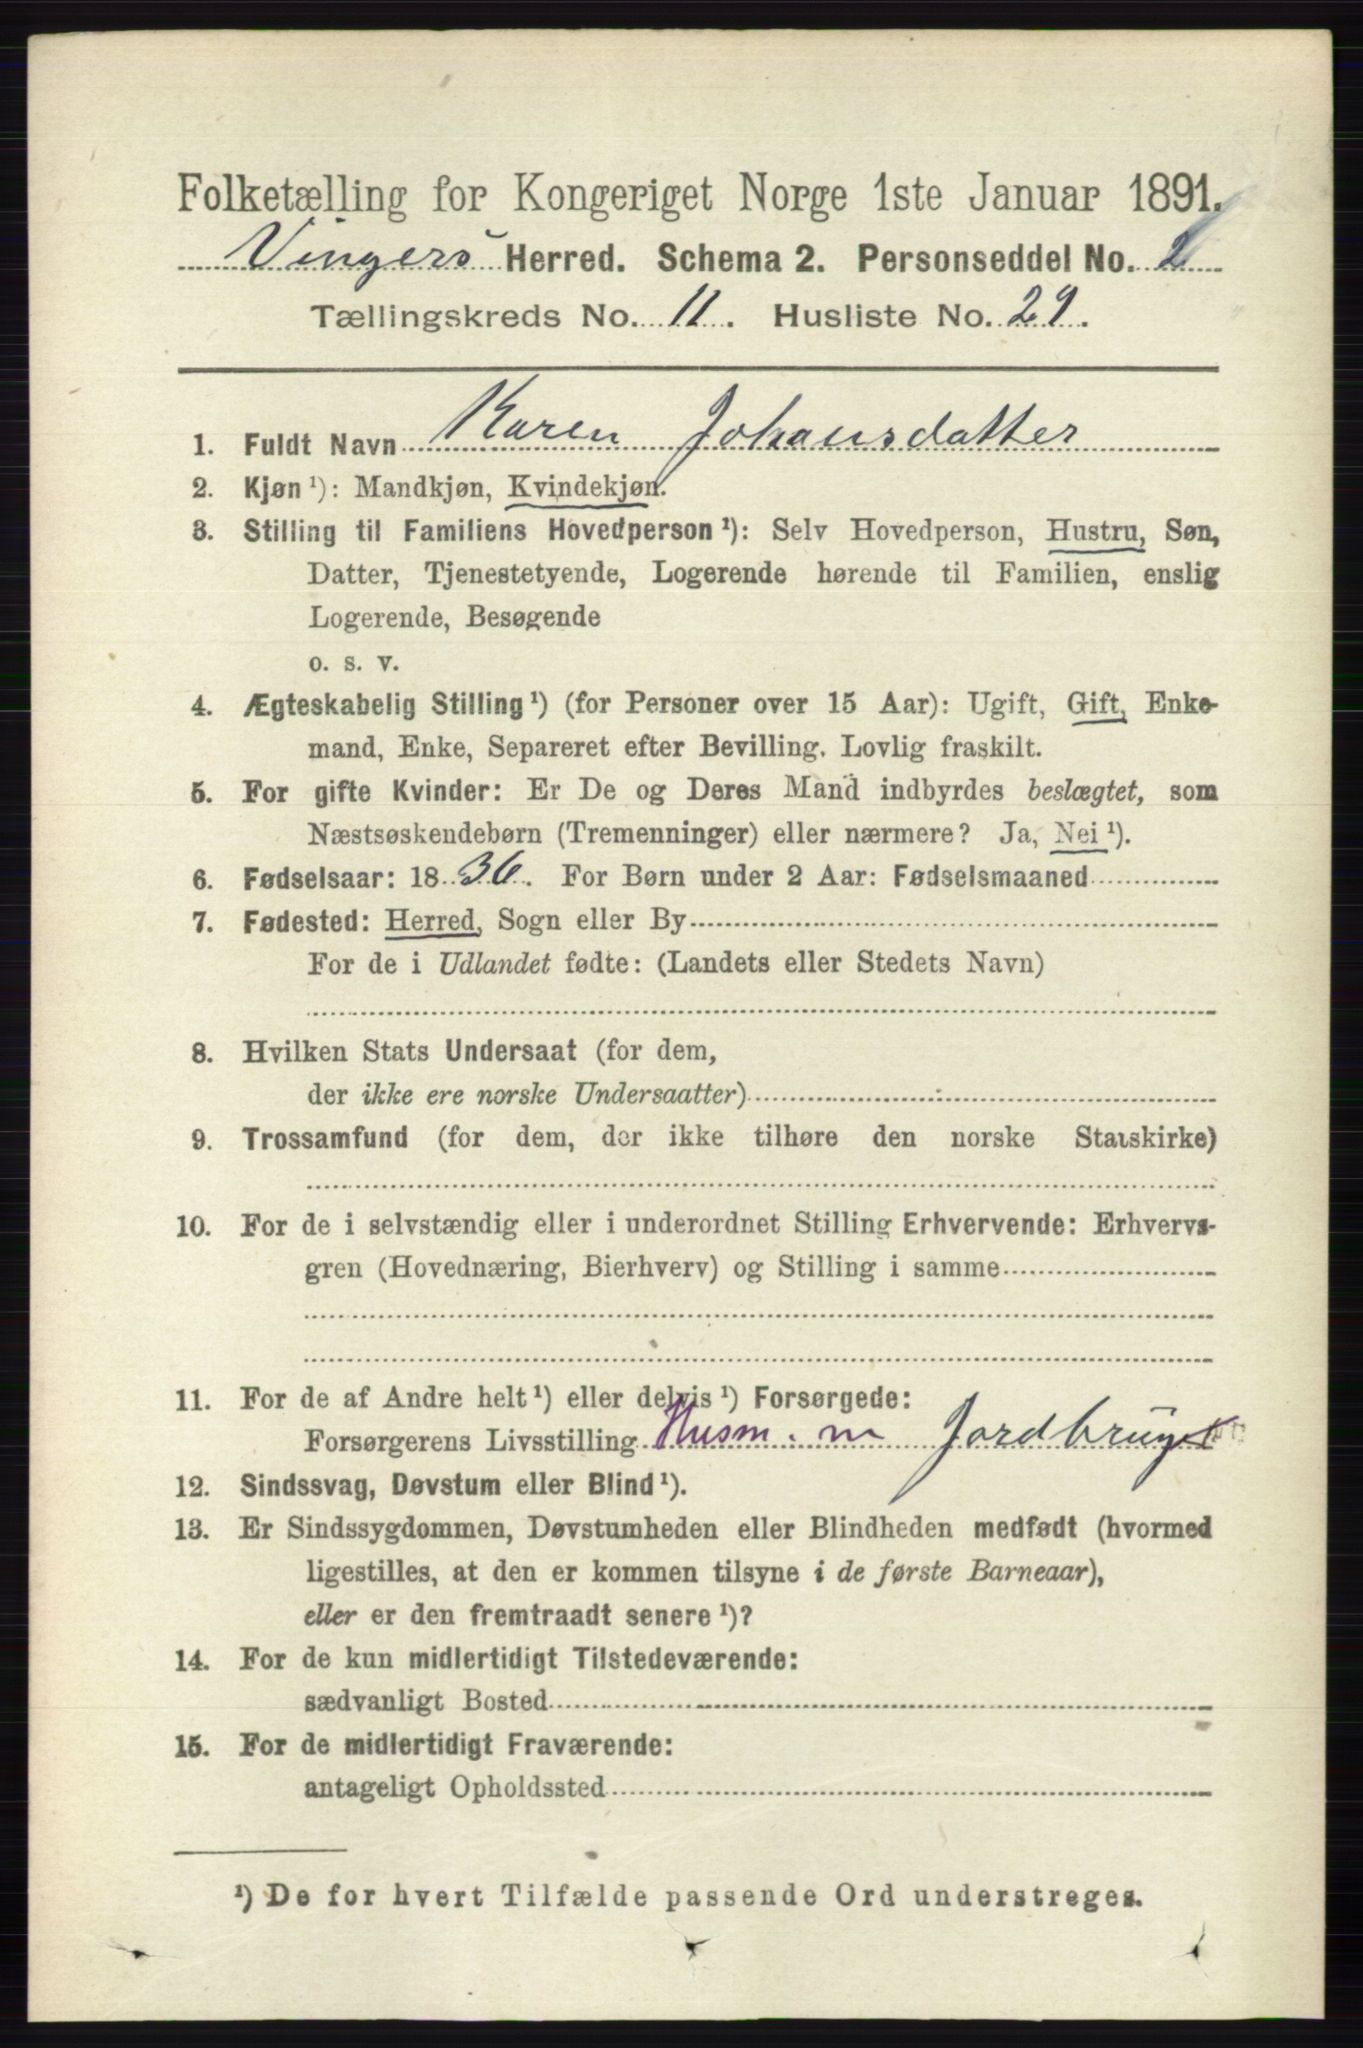 Folketælling for Kongeriget Norge 1ste Januar 1891.
Vingers Herred. Schema 2. Personseddel No. 2
Tællingskreds No. 11. Husliste No. 29.
1. Fuldt Navn Karen Johansdatter
2. Kjøn¹): Mandkjøn, Kvindekjøn.
3. Stilling til Familiens Hovedperson¹): Selv Hovedperson, Hustru, Søn,
Datter, Tjenestetyende, Logerende hørende til Familien, enslig
Logerende, Besøgende
o. s. v.
4. Ægteskabelig Stilling¹) (for Personer over 15 Aar): Ugift, Gift, Enke-
mand, Enke, Separeret efter Bevilling. Lovlig fraskilt.
5. For gifte Kvinder: Er De og Deres Mand indbyrdes beslægtet, som
Næstsøskendebørn (Tremenninger) eller nærmere? Ja, Nei¹).
6. Fødselsaar: 1836. For Børn under 2 Aar: Fødselsmaaned
7. Fødested: Herred, Sogn eller By
For de i Udlandet fødte: (Landets eller Stedets Navn)
8. Hvilken Stats Undersaat (for dem,
der ikke ere norske Undersaatter)
9. Trossamfund (for dem, der ikke tilhøre den norske Statskirke)
10. For de i selvstændig eller i underordnet Stilling Erhvervende: Erhvervs-
gren (Hovednæring, Bierhverv) og Stilling i samme
11. For de af Andre helt¹) eller delvis¹) Forsørgede:
Forsørgerens Livsstilling Husm. m Jordbrug
12. Sindssvag, Døvstum eller Blind¹).
13. Er Sindssygdommen, Døvstumheden eller Blindheden medfødt (hvormed
ligestilles, at den er kommen tilsyne i de første Barneaar),
eller er den fremtraadt senere¹)?
14. For de kun midlertidigt Tilstedeværende:
sædvanligt Bosted
15. For de midlertidigt Fraværende:
antageligt Opholdssted
¹) De for hvert Tilfælde passende Ord understreges.